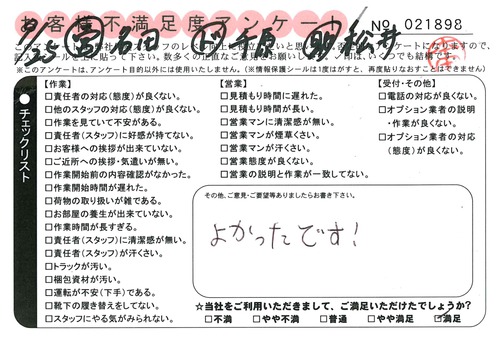 お客様不満足度アンケート
No 021898
9/25 営 名田 千原 松井
※このアンケートは、アンケート目的以外には使用いたしません。(※情報保護シールは1度はがすと、再度貼りなおすことはできません)
チェックリスト
【作業】
□責任者の対応(態度)が良くない。
□他のスタッフの対応(態度)が良くない。
□作業を見ていて不安がある。
□責任者(スタッフ)に好感が持てない。
□お客様への挨拶が出来ていない。
□ご近所への挨拶・気遣いが無い。
□作業開始前の内容確認がなかった。
□作業開始時間が遅れた。
□荷物の取り扱いが雑である。
□お部屋の養生が出来ていない。
□作業時間が長すぎる。
□責任者(スタッフ)に清潔感が無い。
□責任者(スタッフ)が汗くさい。
□トラックが汚い。
□梱包資材が汚い。
□運転が不安(下手)である。
□靴下の履き替えをしてない。
□スタッフにやる気がみられない。
【営業】
□見積もり時間に遅れた。
□見積もり時間が長い。
□営業マンに清潔感が無い。
□営業マンが煙草くさい。
□営業マンが汗くさい。
□営業態度が良くない。
□営業の説明と作業が一致してない。
【受付・その他】
□電話の対応が良くない。
□オプション業者の説明
・作業が良くない。
□オプション業者の対応
(態度)が良くない。
その他、ご意見・ご要望等ありましたらお書き下さい。
よかったです!
☆当社をご利用いただきまして、ご満足いただけたでしょうか?
□不満 □やや不満 □普通 □やや満足 ☑満足